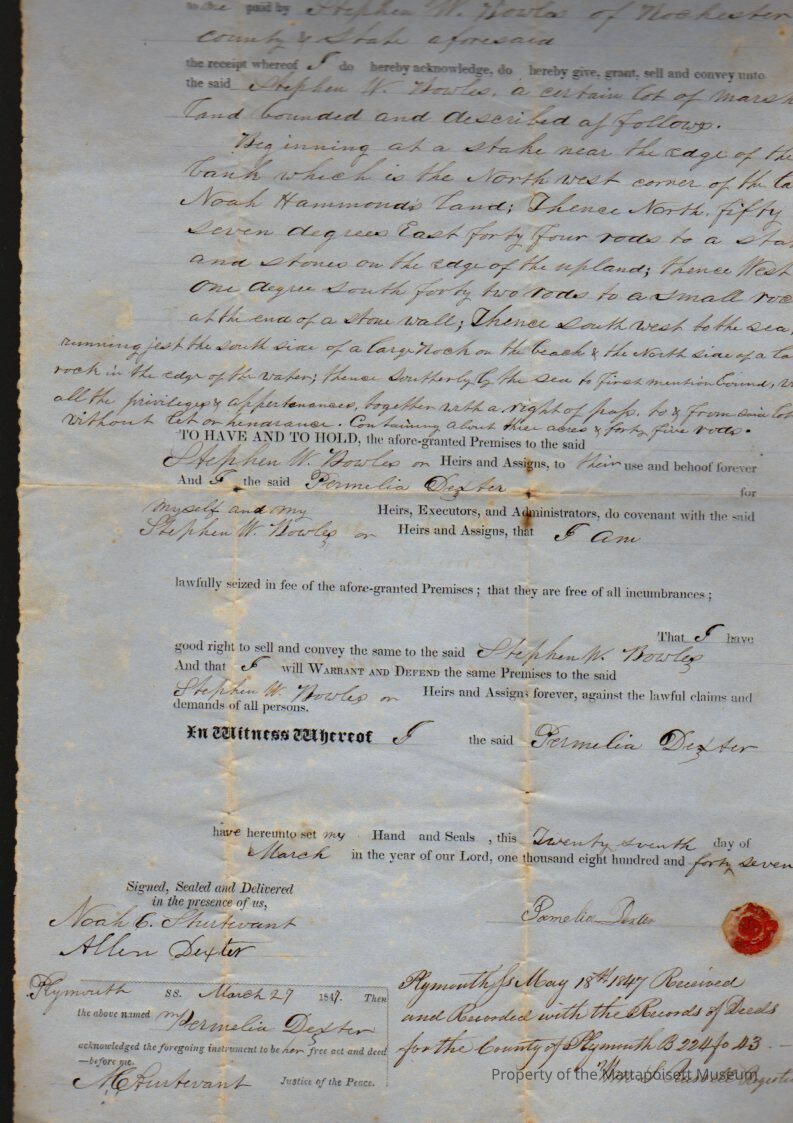 to me paid by Stephen W. Bowles of Rochester
County & State aforesaid
the receipt whereof I do hereby acknowledge, do hereby give, grant, sell and convey unto
the said Stephen W. Bowles, a certain lot of marsh
land bounded and described as follows.
Beginning at a stake near the edge of the
bank which is the North west corner of the
Noah Hammond's land; Thence North, fifty
seven degrees East forty four rods to a
and stones on the edge of the upland; thence West
one degree south forty two rods to a small
at the end of a stone wall; Thence south west to the sea,
running jest the south side of a large Rock on the beach & the North side of a
rock in the edge of the water; thence Southerly by the sea to first mention bound,
all the privileges & appertenances, together with a right of pass, to & from said lot
without let or hindrance. Containing about three acres & forty five rods.
TO HAVE AND TO HOLD, the afore-granted Premises to the said
Stephen W. Bowles or Heirs and Assigns, to their use and behoof forever
And I the said Permelia Dexter for
myself and my Heirs, Executors, and Administrators, do covenant with the said
Stephen W. Bowles or Heirs and Assigns, that I am
lawfully seized in fee of the afore-granted Premises; that they are free of all incumbrances;
That I have
good right to sell and convey the same to the said Stephen W. Bowles
And that I will WARRANT AND DEFEND the same Premises to the said
Stephen W. Bowles or Heirs and Assigns forever, against the lawful claims and
demands of all persons.
In Witness Whereof I the said Permelia Dexter
have hereunto set my Hand and Seals, this Twenty seventh day of
March in the year of our Lord, one thousand eight hundred and forty seven
Signed, Sealed and Delivered
in the presence of us,
Noah C. Sturtevant
Allen Dexter
Pamelia Dexter
Plymouth SS. March 27 1847. Then
the above named Permelia Dexter
acknowledged the foregoing instrument to be her free act and deed
—before me.
Sturtevant Justice of the Peace.
Plymouth Ss May 18th 1847 Received
and Recorded with the Records of Deeds
for the County of Plymouth B 224 fo 43.
Property of the Mattapoisett Museum